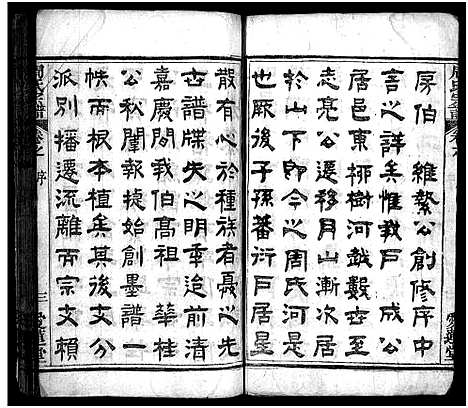 房伯維縶公創修序中
言之詳矣惟我戶成公
居邑東柳樹河越數世至
志亮公遷移月山漸次居
於山下即今之周氏祠宇
也厥後子孫蕃衍戶居星
散有心於種族者憂之先
古譜牒失之明季迨前清
嘉慶間我伯高祖華桂
公秋闈報捷始創墨譜一
帙而根本植矣其後支分
派別播遷流離而宗支賴
周氏宗譜
卷之
序
三
愛蓮堂